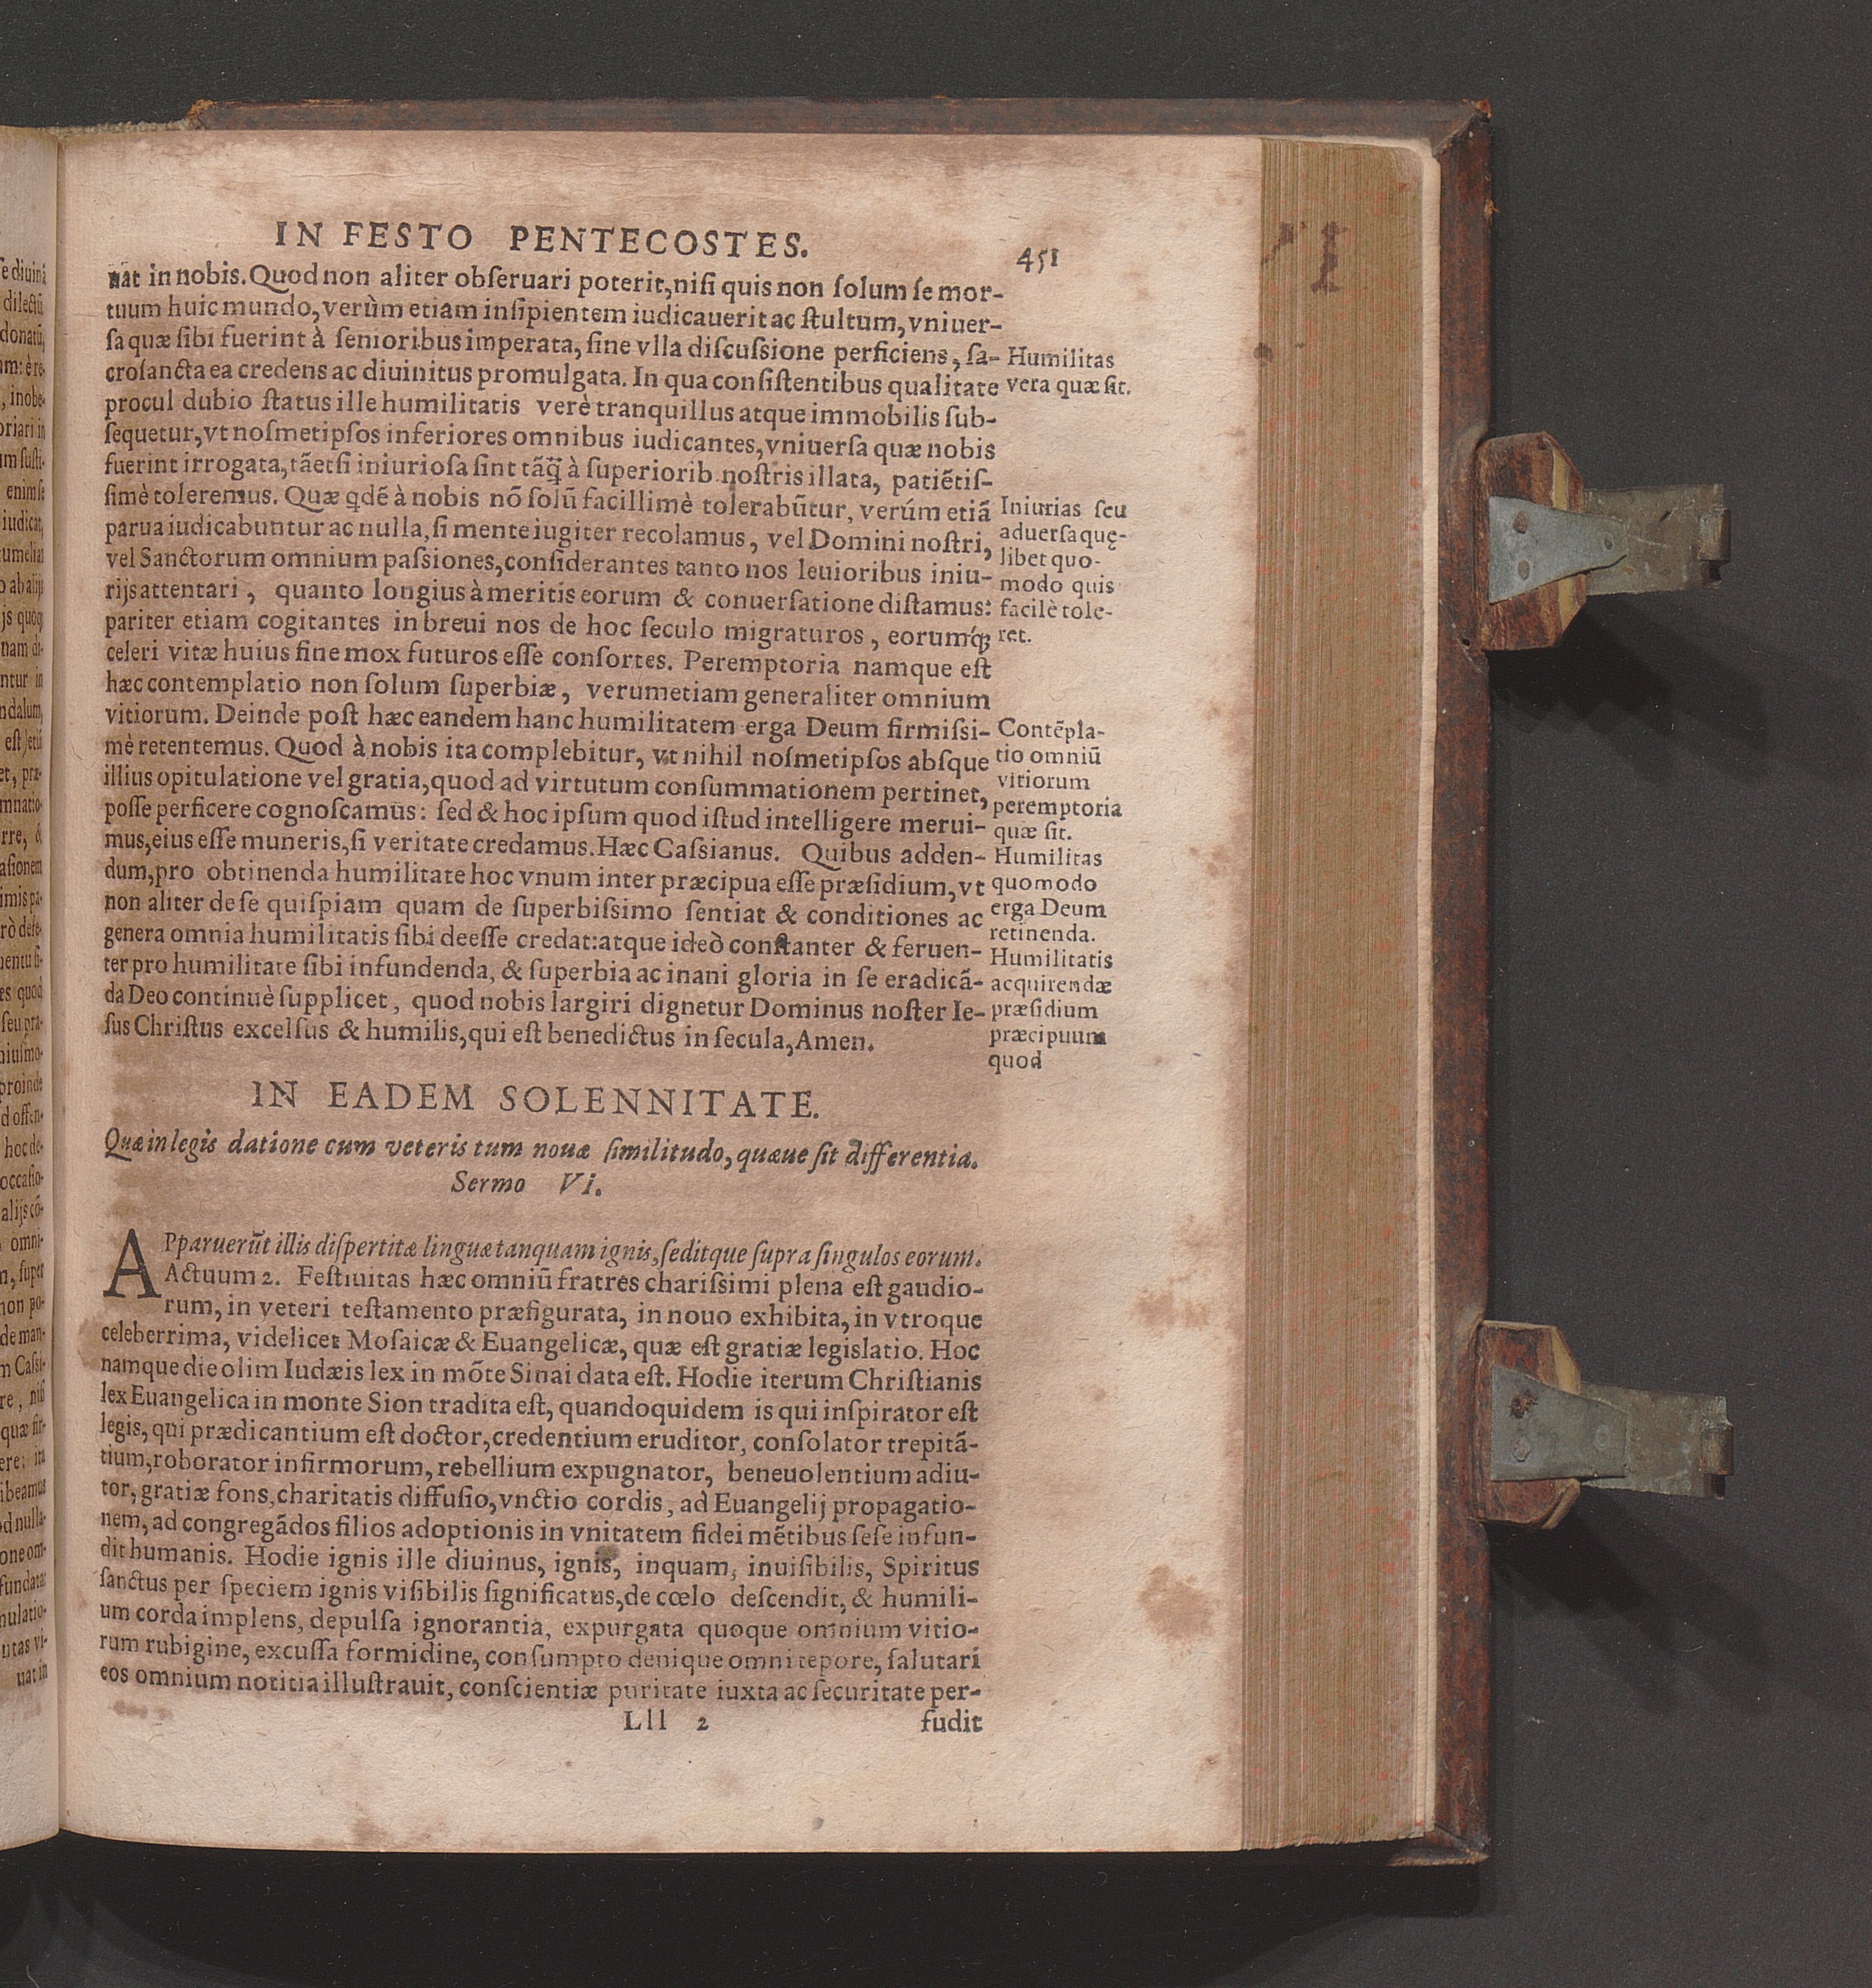 IN FESTO PENTECOSTES. 451
nat in nobis. Quod non aliter obſeruari poterit, niſi quis non ſolum ſe mor-
tuum huic mundo, verùm etiam inſipientem iudicauerit ac ſtultum, vniuer-
ſa quæ ſibi fuerint à ſenioribus imperata, ſine vlla diſcuſsione perficiens, ſa-
croſancta ea credens ac diuinitus promulgata. In qua conſiſtentibus qualitate
procul dubio ſtatus ille humilitatis verè tranquillus atque immobilis ſub-
ſequetur, vt noſmetipſos inferiores omnibus iudicantes, vniuerſa quæ nobis
fuerint irrogata, tãetſi iniurioſa ſint tãq̃ à ſuperiorib. noſtris illata, patiẽtiſ-
ſimè toleremus. Quæ qdẽ à nobis nõ ſolũ facillimè tolerabũtur, verúm etiã
parua iudicabuntur ac nulla, ſi mente iugiter recolamus, vel Domini noſtri,
vel Sanctorum omnium paſsiones, conſiderantes tanto nos leuioribus iniu-
rijs attentari, quanto longius à meritis eorum & conuerſatione diſtamus:
pariter etiam cogitantes in breui nos de hoc ſeculo migraturos, eorumq́;
celeri vitæ huius fine mox futuros eſſe conſortes. Peremptoria namque eſt
hæc contemplatio non ſolum ſuperbiæ, verumetiam generaliter omnium
vitiorum. Deinde poſt hæc eandem hanc humilitatem erga Deum firmiſsi-
mè retentemus. Quod à nobis ita complebitur, vt nihil noſmetipſos abſque
illius opitulatione vel gratia, quod ad virtutum conſummationem pertinet,
poſſe perficere cognoſcamus: ſed & hoc ipſum quod iſtud intelligere merui-
mus, eius eſſe muneris, ſi veritate credamus. Hæc Caſsianus. Quibus adden-
dum, pro obtinenda humilitate hoc vnum inter præcipua eſſe præſidium, vt
non aliter de ſe quiſpiam quam de ſuperbiſsimo ſentiat & conditiones ac
genera omnia humilitatis ſibi deeſſe credat: atque ideò conſtanter & feruen-
ter pro humilitate ſibi infundenda, & ſuperbia ac inani gloria in ſe eradicã-
da Deo continuè ſupplicet, quod nobis largiri dignetur Dominus noſter Ie-
ſus Chriſtus excelſus & humilis, qui eſt benedictus in ſecula, Amen.
Humilitas
vera quæ ſit.
Iniurias ſeu
aduerſa quę-
libet quo-
modo quis
facilè tole-
ret.
Contẽpla-
tio omniũ
vitiorum
peremptoria
quæ ſit.
Humilitas
quomodo
erga Deum
retinenda.
Humilitatis
acquirendæ
præſidium
præcipuum
quod
IN EADEM SOLENNITATE.
Quæ in legis datione cum veteris tum nouæ ſimilitudo, quæue ſit differentia.
Sermo VI.
APparuerũt illis diſpertitæ linguæ tanquam ignis, ſeditque ſupra ſingulos eorum.
Actuum 2. Feſtiuitas hæc omniũ fratres chariſsimi plena eſt gaudio-
rum, in veteri teſtamento præfigurata, in nouo exhibita, in vtroque
celeberrima, videlicet Moſaicæ & Euangelicæ, quæ eſt gratiæ legislatio. Hoc
namque die olim Iudæis lex in mõte Sinai data eſt. Hodie iterum Chriſtianis
lex Euangelica in monte Sion tradita eſt, quandoquidem is qui inſpirator eſt
legis, qui prædicantium eſt doctor, credentium eruditor, conſolator trepitã-
tium, roborator infirmorum, rebellium expugnator, beneuolentium adiu-
tor, gratiæ fons, charitatis diffuſio, vnctio cordis, ad Euangelij propagatio-
nem, ad congregãdos filios adoptionis in vnitatem fidei mẽtibus ſeſe infun-
dit humanis. Hodie ignis ille diuinus, ignis, inquam, inuiſibilis, Spiritus
ſanctus per ſpeciem ignis viſibilis ſignificatus, de cœlo deſcendit, & humili-
um corda implens, depulſa ignorantia, expurgata quoque omnium vitio-
rum rubigine, excuſſa formidine, conſumpto denique omni tepore, ſalutari
eos omnium notitia illuſtrauit, conſcientiæ puritate iuxta ac ſecuritate per-
Lll 2 fudit